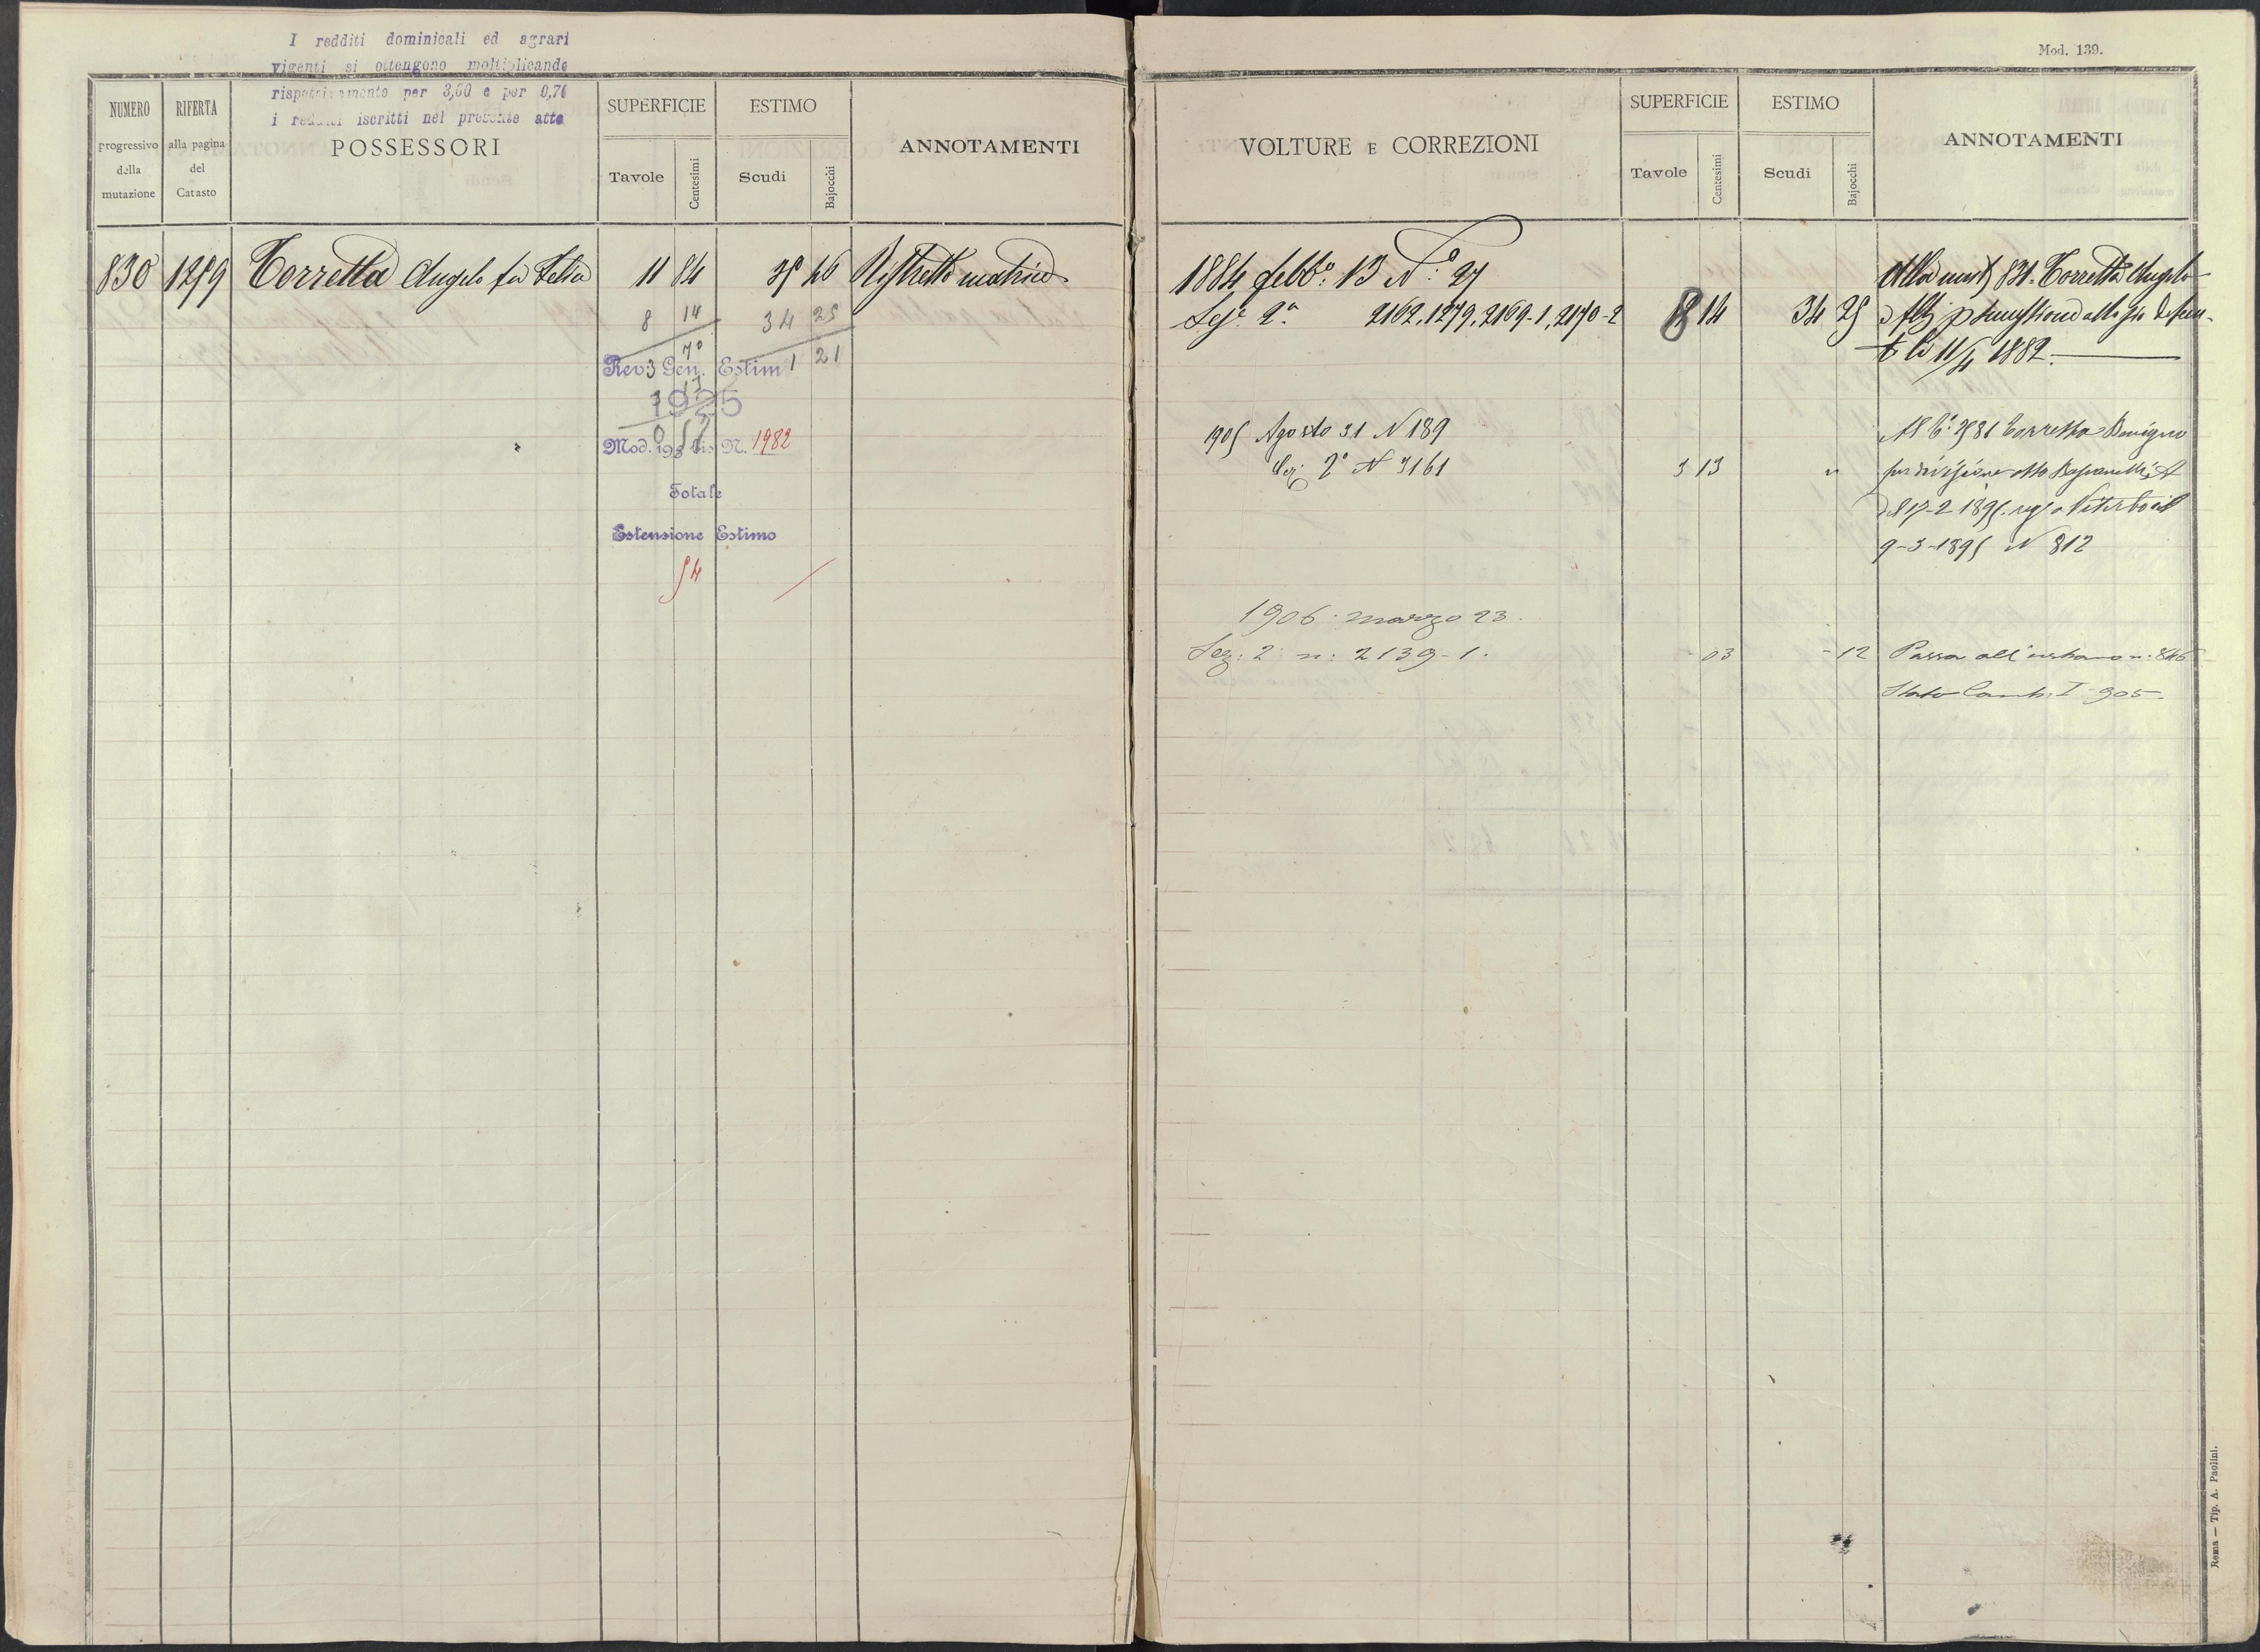 I redditi dominicali ed agrari
vigenti si ottengono moltiplicando
rispettivamente per 3,60 e per 0,70
i redditi iscritti nel presente atto
NUMERO
progressivo
della
mutazione
RIFERTA
alla pagina
del
Catasto
POSSESSORI
SUPERFICIE
Tavole
Centesimi
ESTIMO
Scudi
Bajocchi
ANNOTAMENTI
830 1259 Torretta Angelo fu 11 84 35 46 Ristretto matrice
8 14 34 25
3 70 1 21
Rev. Gen. Estimi
1925
Mod. 198 bis N. 1982
Totale
Estensione Estimo
54 /
Mod. 139.
VOLTURE E CORREZIONI
SUPERFICIE
Tavole
Centesimi
ESTIMO
Scudi
Bajocchi
ANNOTAMENTI
1884 febb.° 13 N.° 27 Torretta Angelo
Sez.e 2.a 2162, 1279, 2169-1, 2170-2 8 14 34 25
li 11/4 1882.
1905 Agosto 31 N 189 Torretta Benigno
Sez. 2a N 3161 3 13 " per divisione atto
17-2 1895 reg. a Viterbo il
9-3-1895 N 812
1906 marzo 23.
Sez: 2 n: 2139-1. - 03 - 12 Passa all'urbano n. 846
Stato Camb. I 905.
Roma — Tip. A. Paolini.